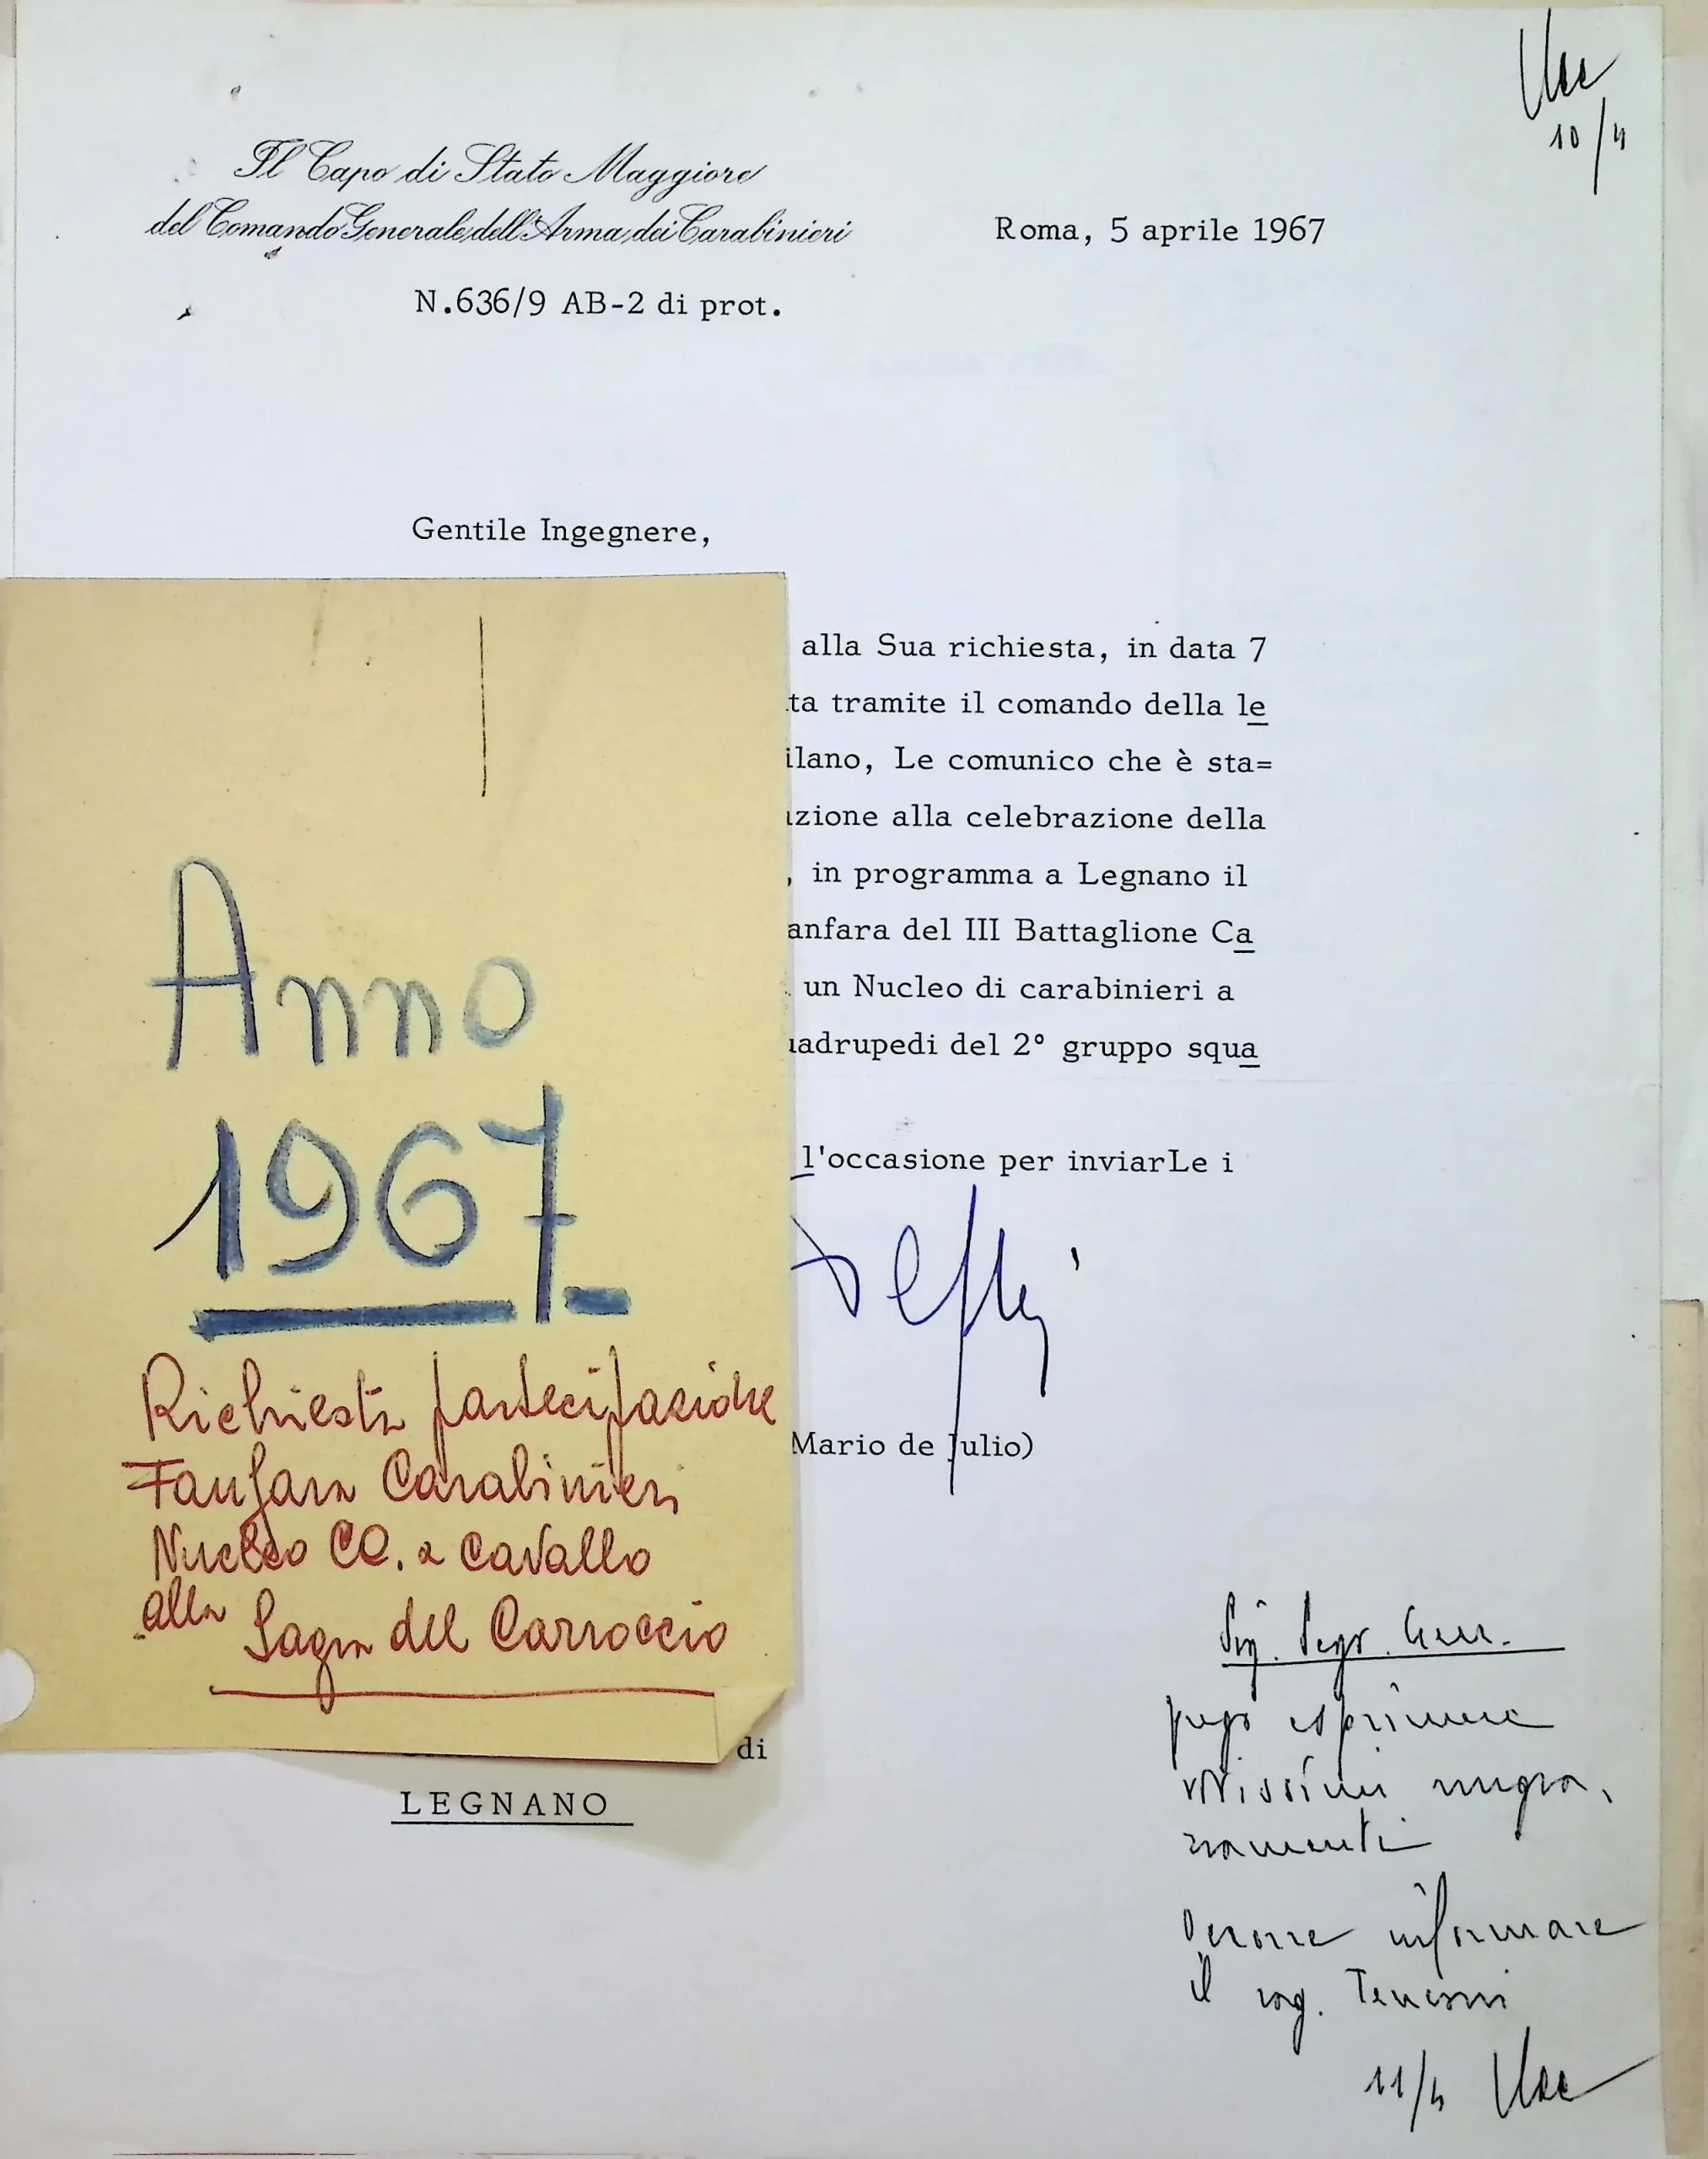 10/4
Il Capo di Stato Maggiore
del Comando Generale dell'Arma dei Carabinieri
Roma, 5 aprile 1967
N.636/9 AB-2 di prot.
Gentile Ingegnere,
alla Sua richiesta, in data 7
ta tramite il comando della le
ilano, Le comunico che è sta=
zione alla celebrazione della
, in programma a Legnano il
anfara del III Battaglione Ca
un Nucleo di carabinieri a
uadrupedi del 2° gruppo squa
l'occasione per inviarLe i
Mario de Julio)
di
LEGNANO
Anno
1967
Richiesta partecipazione
Fanfara Carabinieri
Nucleo CC. a cavallo
alla Sagra del Carroccio
Sig. Segr. Gen.
prego esprimere
vivissimi ringra,
ziamenti
informare
il rag.
11/4